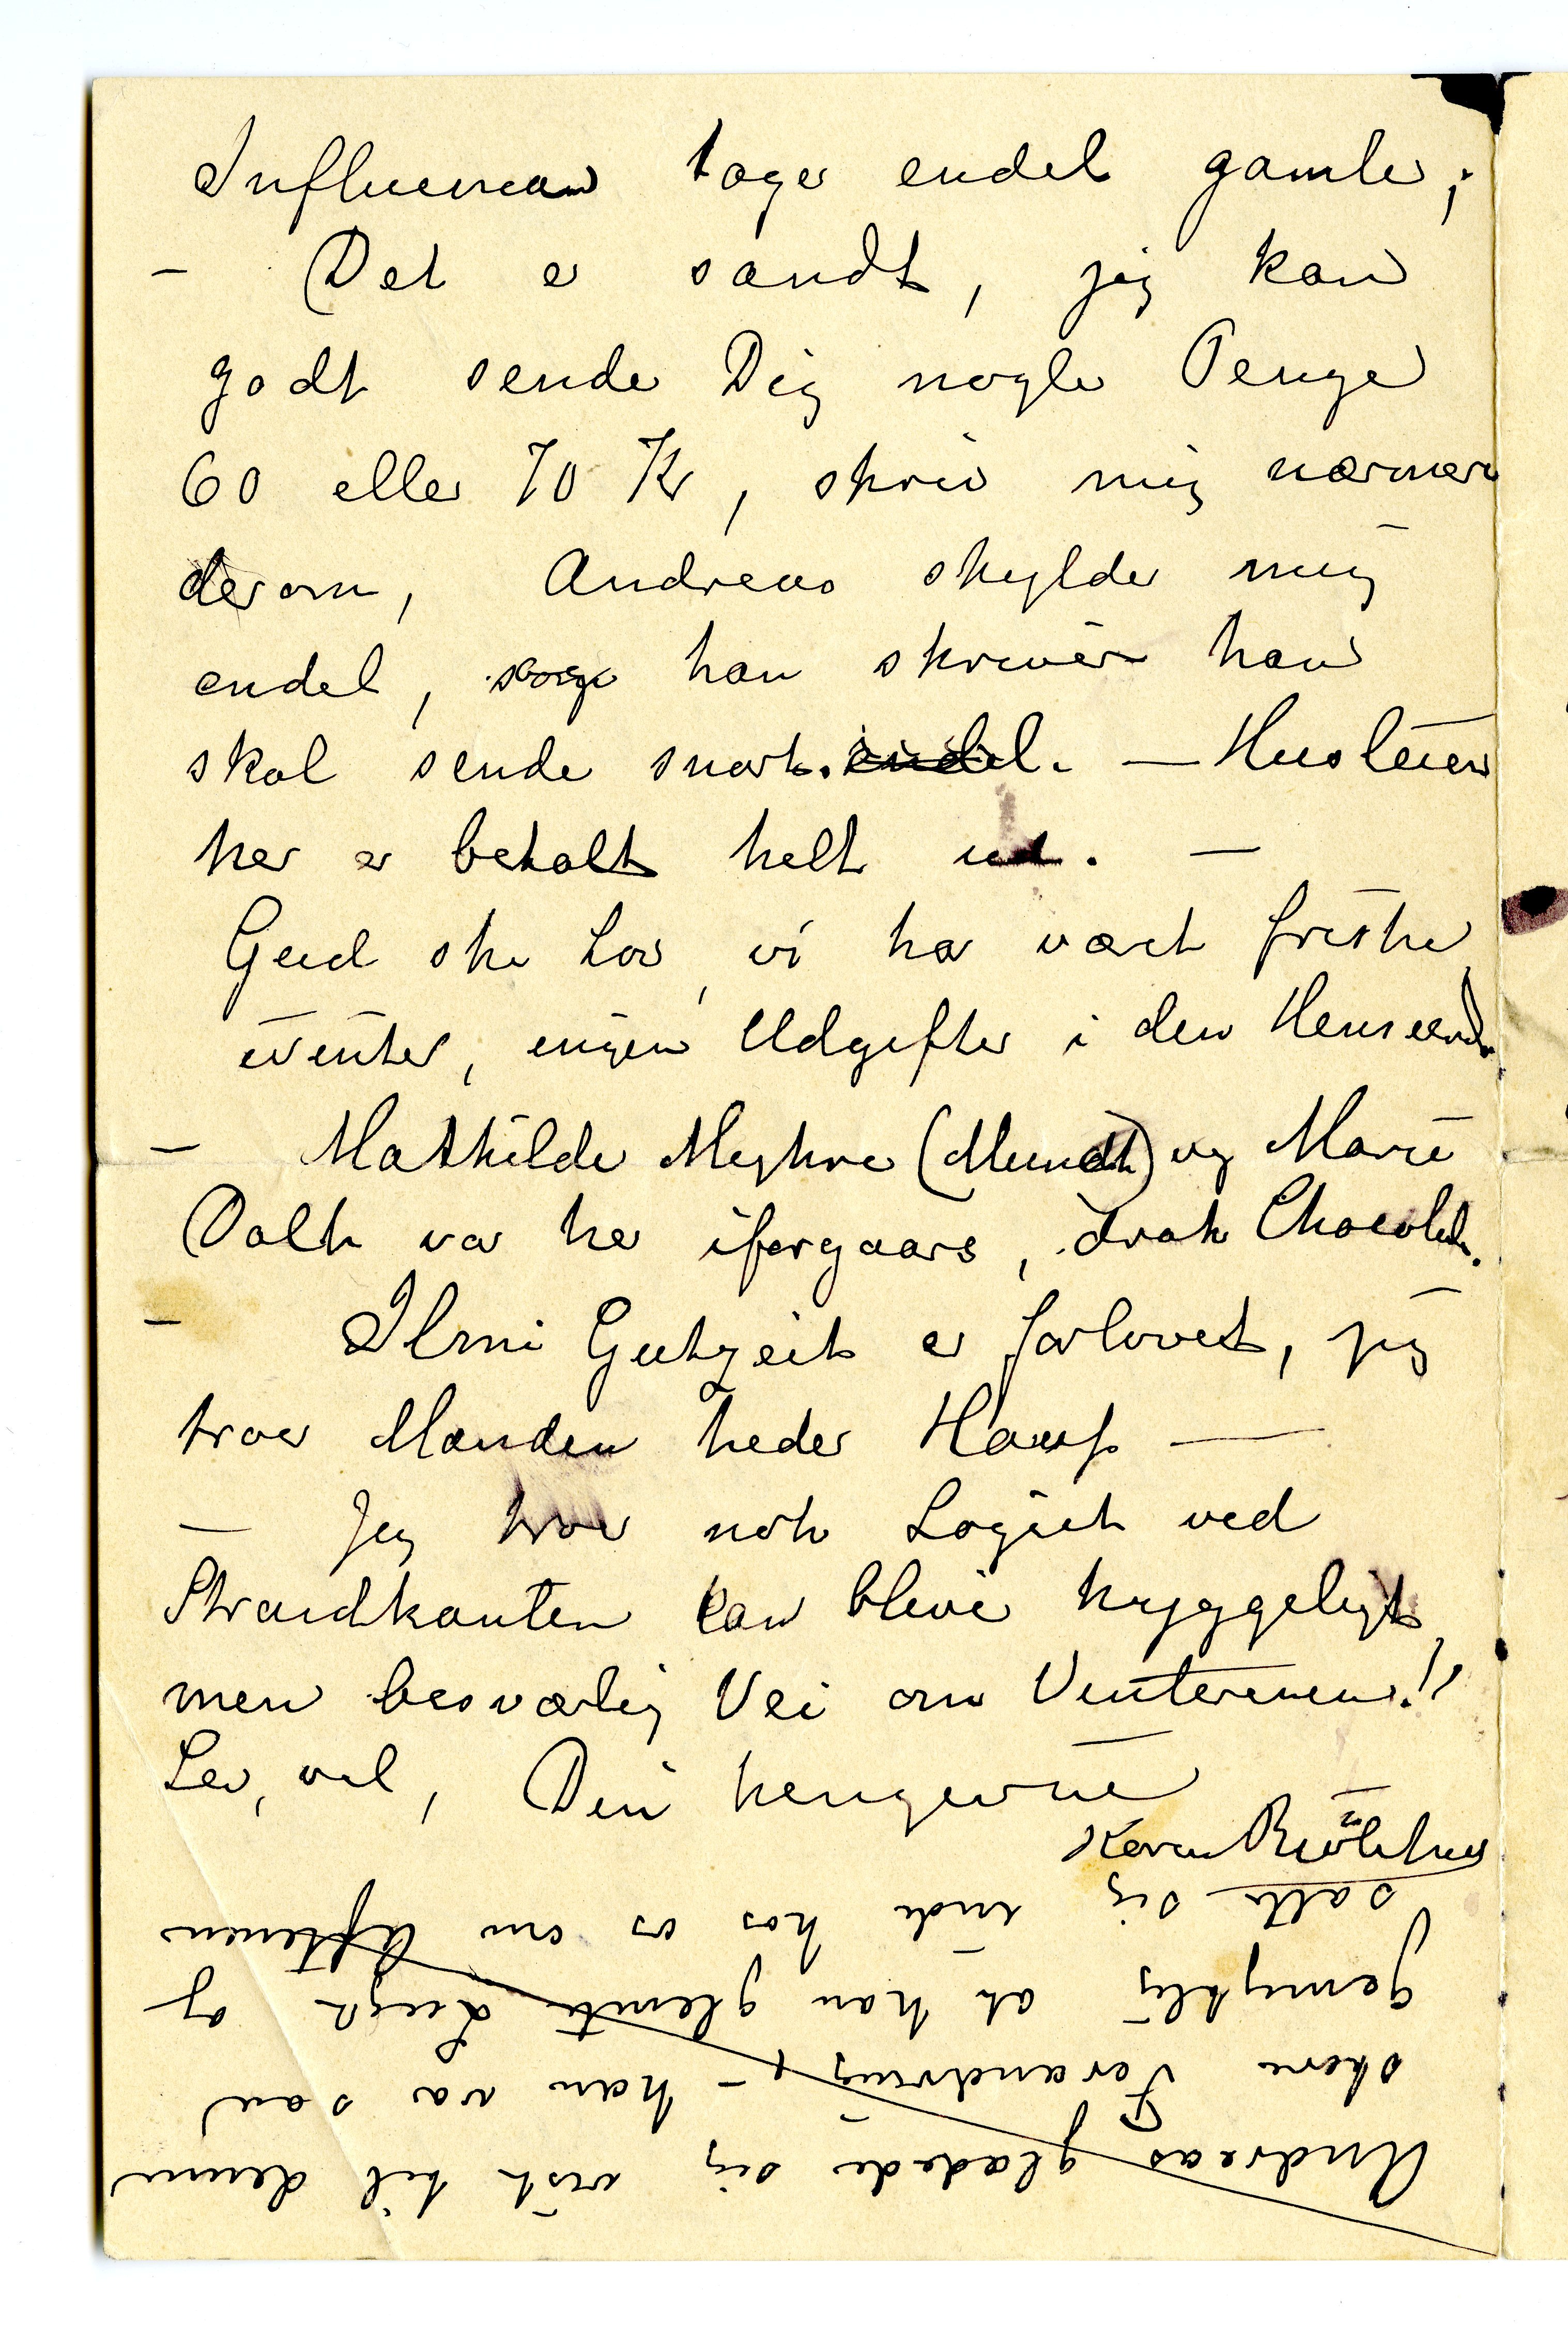 Influenzan tager endel gamle;
– Det er sandt, jeg kan
godt sende Dig nogle Penge
60 eller 70 Kr, skriv mig nærmere
derom, Andreas skylder mig
endel, han skriver han
skal sende snart. endel. – Husleien
her er betalt helt ud. –
Gud ske Lov, vi har vært friske
ivinter, ingen Udgifter i den Henseende
– Mathilde Myhre (Mundt) og Marie
Dahl var her iforgaars, drak Chocolade.
– Ilmi Gutzeit er forlovet, jeg
troer Manden heder Hauf –
– Jeg troer nok Logiet ved
Strandkanten kan blive hyggeligt,
men besværlig Vei om Vinterenen!!
Lev vel, Din hengivne
Karen Bjølstad
Andreas glædede sig vist til denne
skere Forandring, – han var saa
gemytlig at han glemte Luga og
satte sig inde hos os om Aftenen